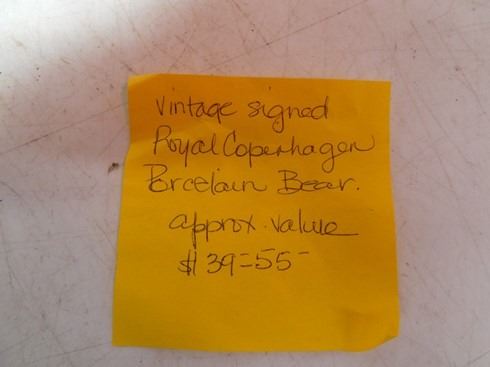 Vintage signed
Royal Copenhagen
Porcelain Bear.
approx. value
$39=55-